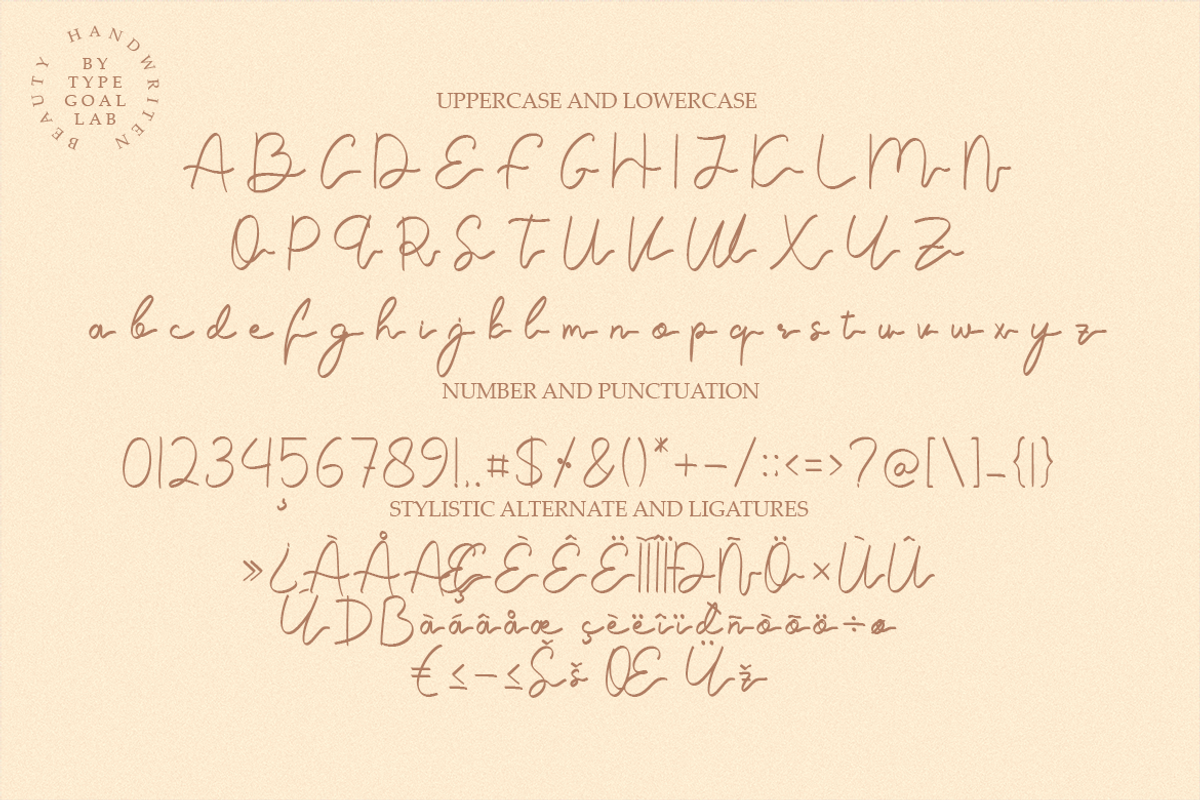 BEAUTY HANDWRITEN
BY
TYPE
GOAL
LAB
UPPERCASE AND LOWERCASE
A B C D E F G H I J K L M N
O P Q R S T U V W X Y Z
a b c d e f g h i j k l m n o p q r s t u v w x y z
NUMBER AND PUNCTUATION
0123456789!,.#$%&()*+-/:;<=>?@[\]_{|}
STYLISTIC ALTERNATE AND LIGATURES
»¿ÀÅÆÇÈÊËÌÍÎÏÐÑÖ×ÙÛ
ÚDBàáâåæ çèëîïðñòõö÷ø
€≤–≤Šš ŒÜž